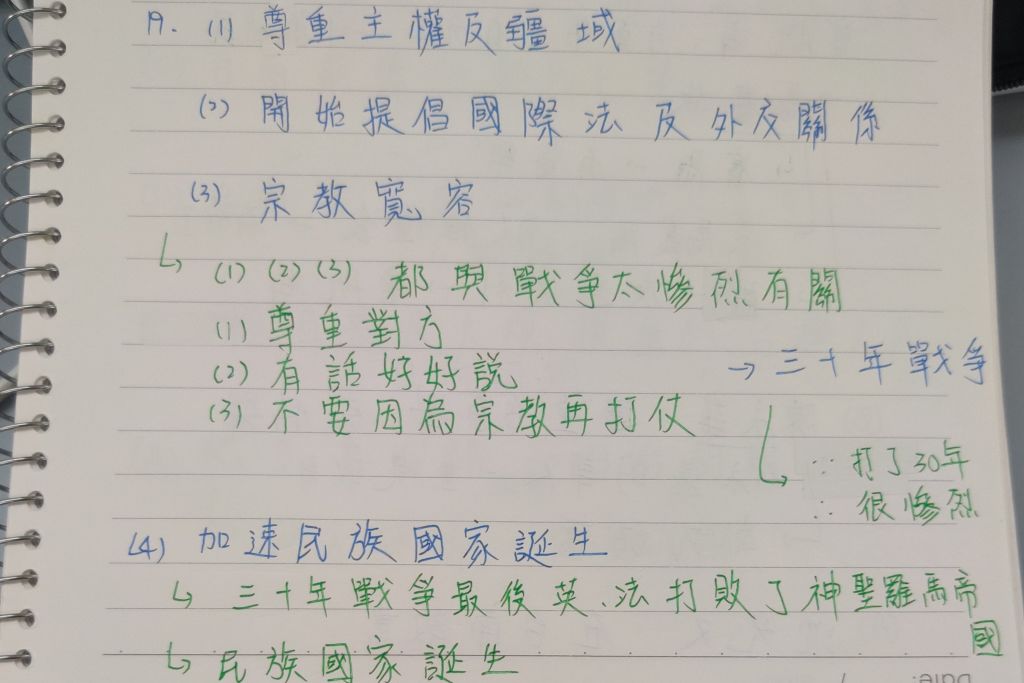 19. (1) 尊重主權及疆域
(2) 開始提倡國際法及外交關係
(3) 宗教寬容
↳ (1) (2) (3) 都與戰爭太慘烈有關
(1) 尊重對方
(2) 有話好好說
(3) 不要因為宗教再打仗
→ 三十年戰爭
∵ 打了30年
∴ 很慘烈
(4) 加速民族國家誕生
↳ 三十年戰爭最後英、法打敗了神聖羅馬帝國
↳ 民族國家誕生